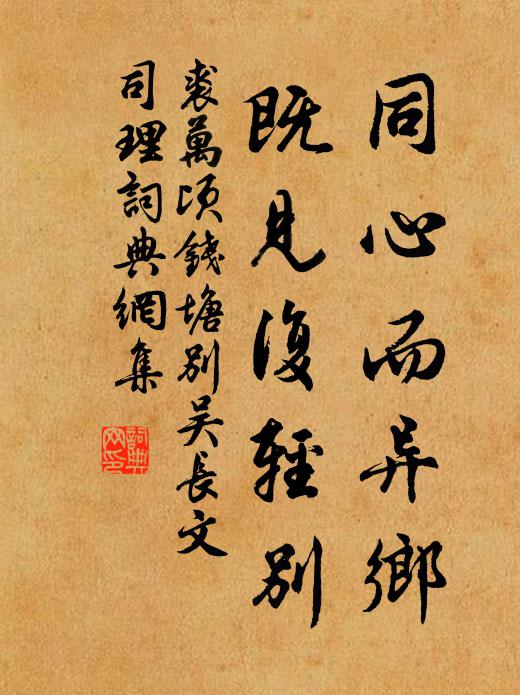 同心而异鄉
既見復輕別
裘萬頃錢塘別吴長文
司理詞典網集
詞典網印